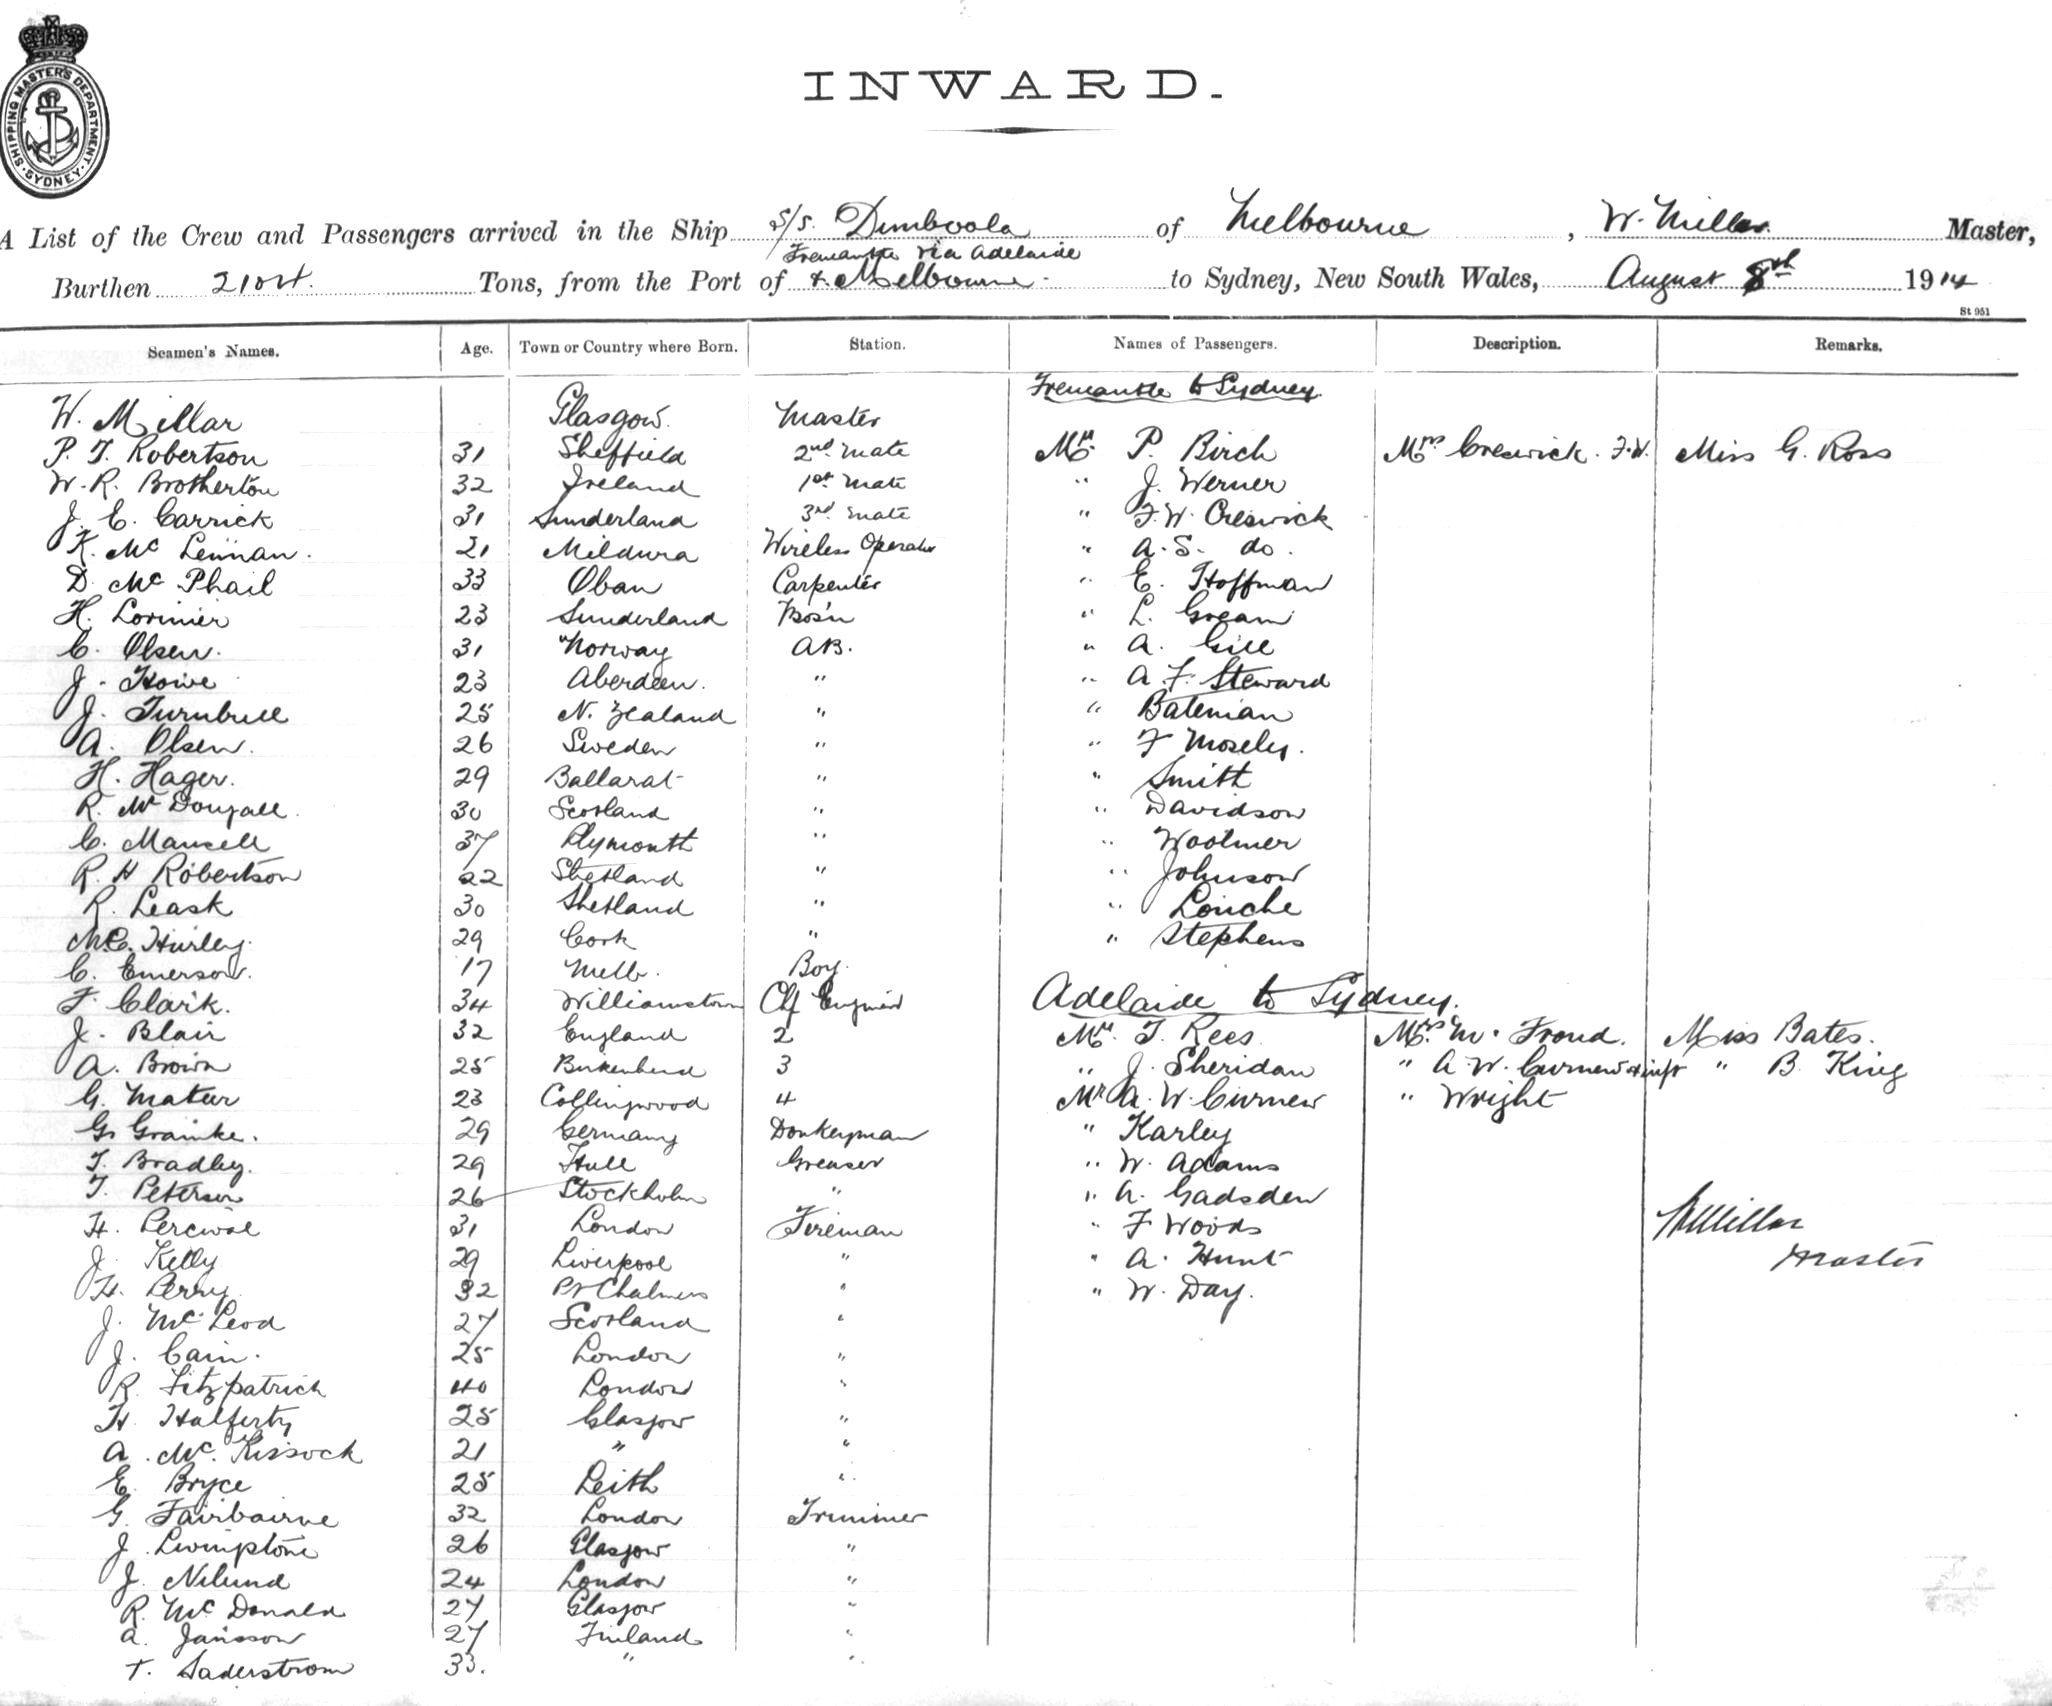 SHIPPING MASTER'S DEPARTMENT · SYDNEY ·
INWARD.
A List of the Crew and Passengers arrived in the Ship S/S. Dimboola of Melbourne, W. Millar Master,
Fremantle via Adelaide
Burthen Tons, from the Port of & Melbourne to Sydney, New South Wales, August 8th 1914
St 951
Seamen's Names. Age. Town or Country where Born. Station. Names of Passengers. Description. Remarks.
Fremantle to Sydney
W. Millar Glasgow. Master
P. T. Robertson 31 Sheffield 2nd Mate Mr. P. Birch Mrs Creswick. F.W. Miss G. Ross
W. R. Brotherton 32 Ireland 1st Mate " J. Werner
J. E. Carrick 31 Sunderland 3rd Mate " F. W. Creswick
K. Mc Lennan. 21 Mildura Wireless Operator " A. S. do.
D. Mc Phail 33 Oban Carpenter " E. Hoffman
H. Lorimer 23 Sunderland Bos'n " L. Gream
C. Olsen. 31 Norway AB. " A. Gill
J. Howe 23 Aberdeen. " " A. F. Steward
J. Turnbull 25 N. Zealand " " Bateman
A. Olsen. 26 Sweden " " F Moseley.
H. Hager. 29 Ballarat " " Smith
R. Mc Dougall. 30 Scotland " " Davidson
C. Mansell 37 Plymouth " " Woolmer
R. H Robertson 22 Shetland " " Johnson
R. Leask 30 Shetland " " Louche
M.C. Hurley. 29 Cork " " Stephens
C. Emerson. 17 Melb. Boy.
F. Clark. 34 Williamstown Chf Engineer Adelaide to Sydney.
J. Blair 32 England 2 Mr. T. Rees Mrs. M. Froud. Miss Bates.
A. Brown 25 Birkenhead 3 " J. Sheridan " A. W. Curnew & inft " B. King
G. Mateer 23 Collingwood 4 Mr A. W. Curnew " Wright
G. Gramke. 29 Germany Donkeyman " Karley
T. Bradley. 29 Hull Greaser " W. Adams
T. Peterson 26 Stockholm " " A. Gadsden
H. Percival 31 London Fireman " F Woods W Millar
J. Kelly 29 Liverpool " " A. Hunt Master
H. Perry. 32 Pt Chalmers " " W. Day.
J. Mc Leod 27 Scotland "
J. Cain. 25 London "
R. Fitzpatrick 40 London "
H. Halferty 25 Glasgow "
A. Mc. Kissock 21 " "
E. Bryce 25 Leith "
G. Fairbairne 32 London Trimmer
J. Livingstone 26 Glasgow "
J. Nilund 24 London "
R. Mc Donald 27 Glasgow "
A. Jansson 27 Finland "
T. Saderstrom 33. " "